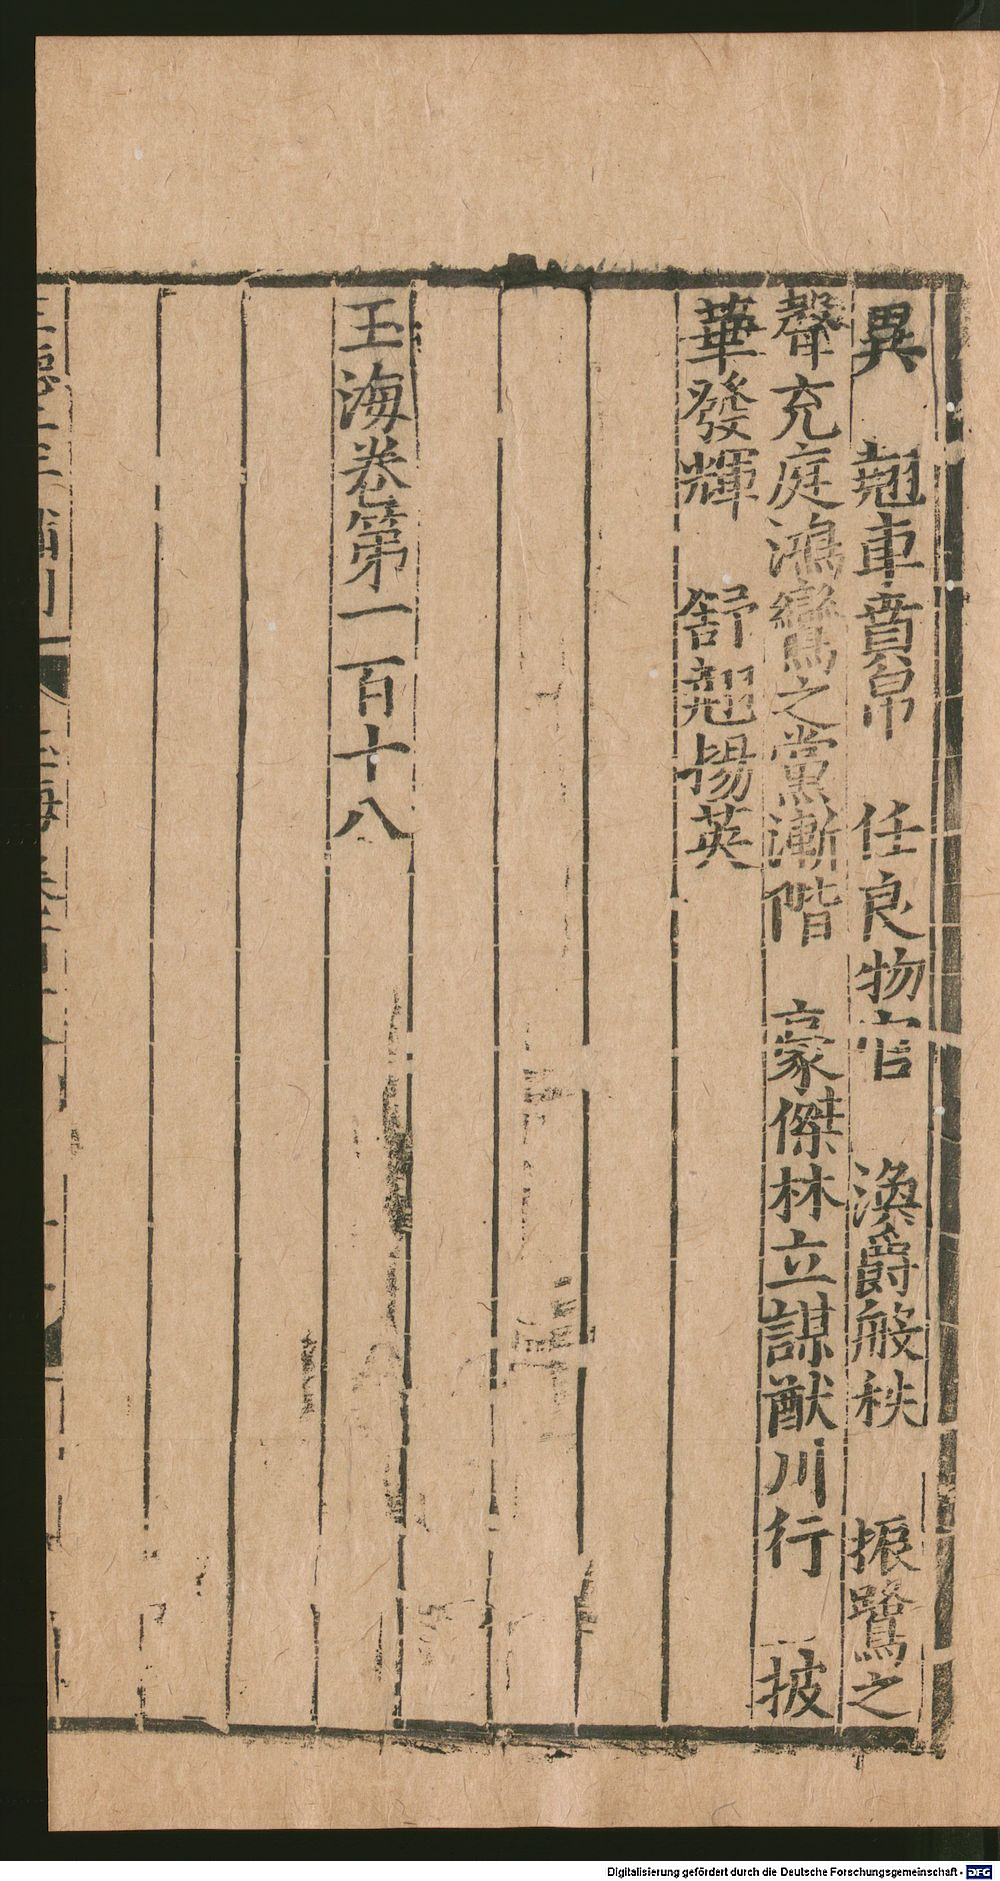 異　翹車賁帛　任良物官　渙爵般秩　振鷺之
聲充庭鴻鸞之黨漸階　豪傑林立謀猷川行　披
華發輝　舒翹揚英
玉海卷第一百十八
Digitalisierung gefördert durch die Deutsche Forschungsgemeinschaft - DFG